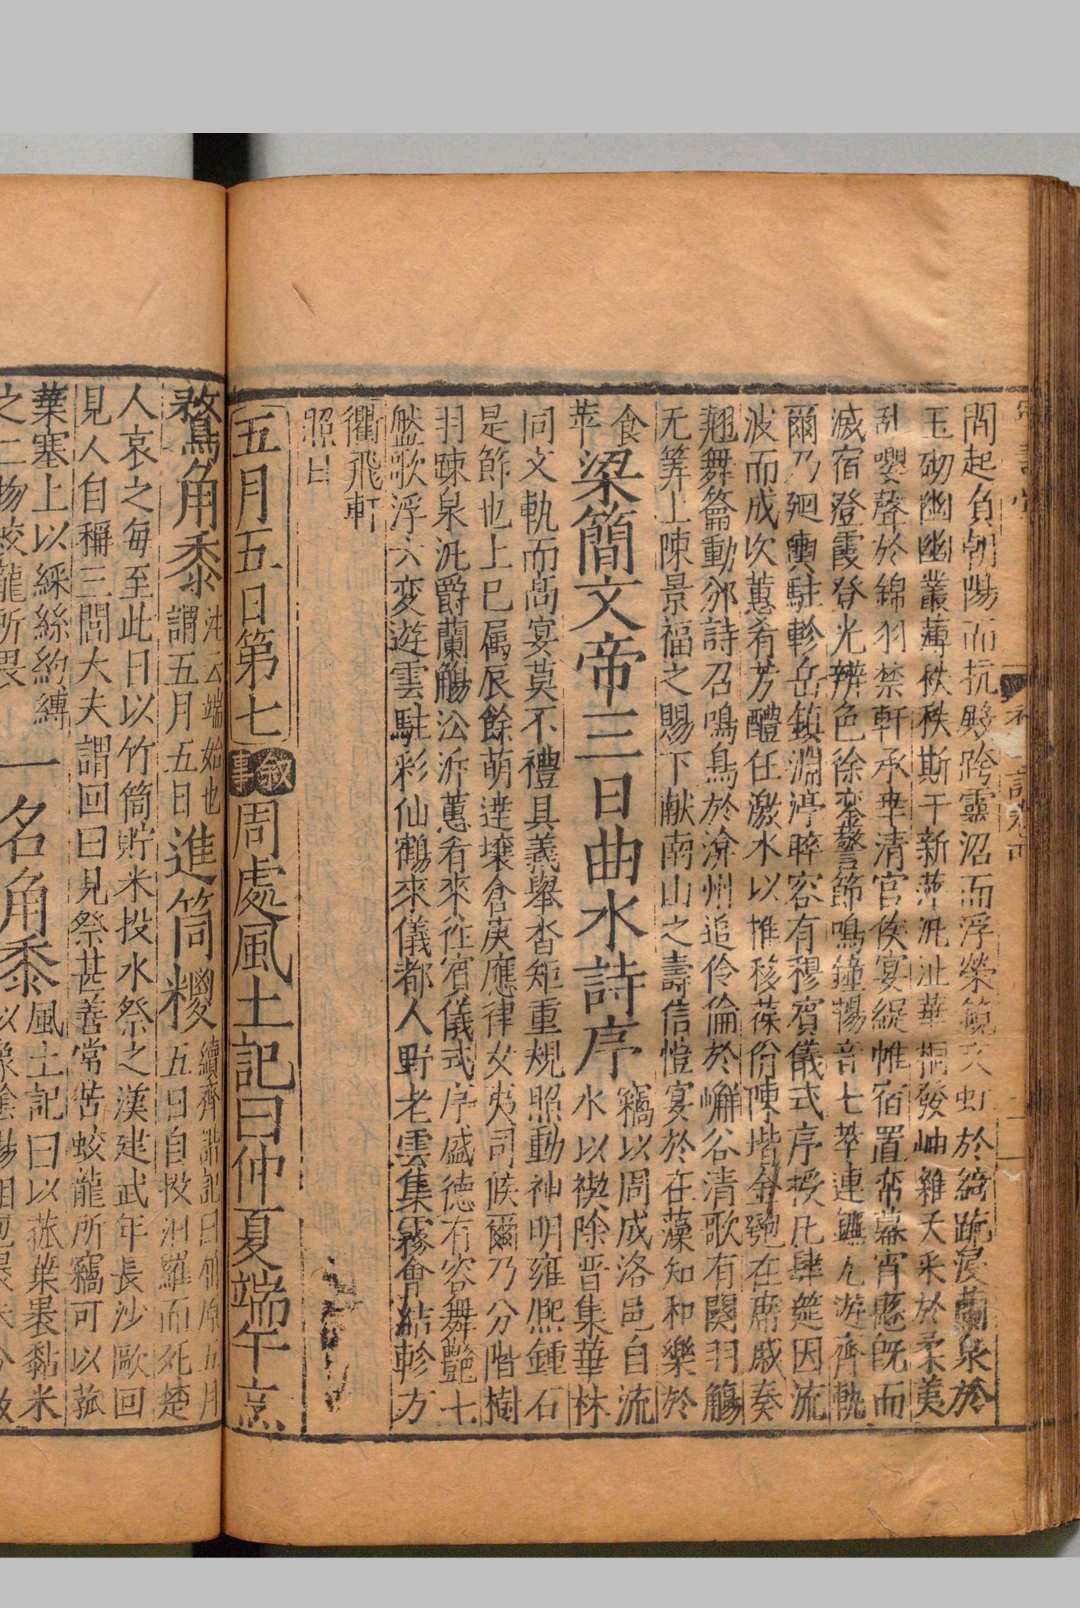 閣起負朝陽而抗殿跨靈沼而浮榮鏡文虹於綺疏浸蘭泉於
玉砌幽幽叢薄秩秩斯干新萍泚沚華桐發岫雜夭采於柔荑
乱嚶聲於錦羽禁軒承幸清宮俟宴緹帷宿置帟幕宵懸既而
滅宿登霞登光辨色徐鑾警節鳴鐘暢音七萃連鑣九游齊軌
爾乃廻輿駐軫岳鎮淵渟睟容有穆賓儀式序授几肆筵因流
波而成次蕙肴芳醴任激水以推移葆佾陳堦金匏在席戚奏
翹舞籥動邠詩召鳴鳥於弇州追伶倫於嶰谷清歌有闋羽觴
无筭上陳景福之賜下献南山之壽信愷宴於在藻知和樂於
食
苹
梁簡文帝三日曲水詩序
竊以周成洛邑自流
水以禊除晉集華林
同文軌而高宴莫不禮具義舉沓矩重規照動神明雍熈鍾石
是節也上巳属辰餘萌達壤倉庚應律女夷司候爾乃分階樹
羽踈泉汎爵蘭觴沿泝蕙肴來徃賓儀式序盛德有容舞艶七
盤歌浮六变遊雲駐彩仙鶴來儀都人野老雲集霧會結軫方
衢飛軒
照日
五月五日第七 敘事 周處風土記曰仲夏端午烹
鶩角黍 注云端始也
謂五月五日 進筒糉 續齊諧記曰屈原五月
五日自投汨羅而死楚
人哀之每至此日以竹筒貯米投水祭之漢建武年長沙歐回
見人自稱三閭大夫謂回曰見祭甚善常苦蛟龍所竊可以菰
葉塞上以綵絲約縛
之二物蛟龍所畏 一名角黍 風土記曰以菰葉裹黏米